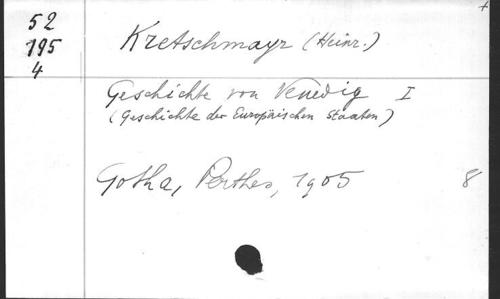 +
52
195
4
Kretschmayr (Heinr.)
Geschichte von Venedig I
(Geschichte der Europäischen Staaten)
Gotha, Perthes, 1905 8